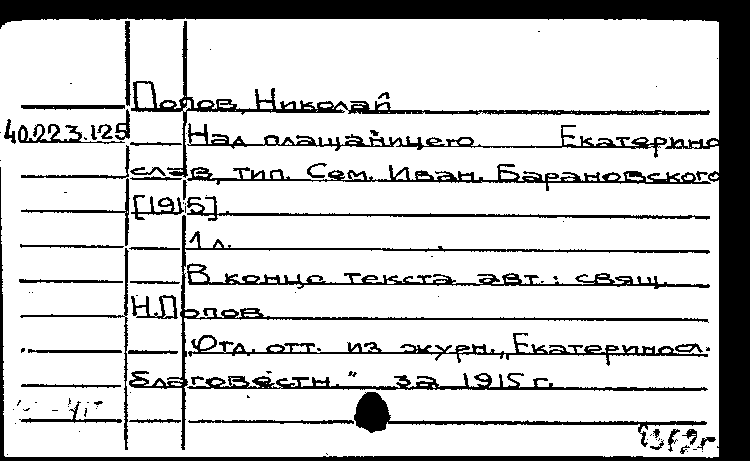 Попов, Николай
40.22.3.125 Над плащаницею. Екатерино
слав, тип. Сем. Иван. Барановского
[1915].
1 л.
В конце текста авт.: свящ.
Н.Попов.
Отд. отт. из журн. „Екатериносл.
благовестн." за 1915 г.